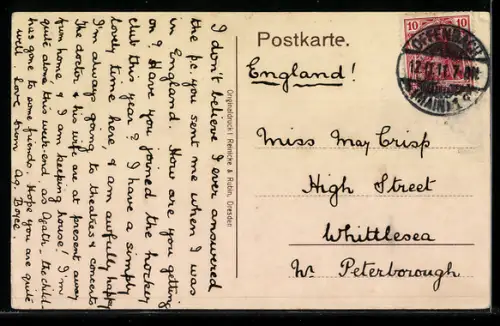 Postkarte.
10 10
OFFENBACH
(MAIN) 1
England!
Miss May Crisp
High Street
Whittlesea
Nr Peterborough
Originaldruck: Reinicke & Rubin, Dresden
I don't believe I ever answered
the p.c. you sent me when I was
in England. How are you getting
on? Have you joined the hockey
club this year? I have a simply
lovely time here & am awfully happy
I'm always going to theatres & concerts
The doctor & his wife are at present away
from home & I am keeping house! I'm
quite alone this week-end as Agath - the child-
has gone to some friends. Hope you are quite
well. Love from